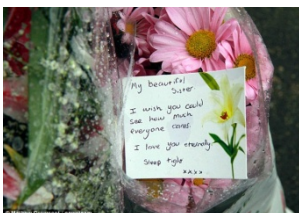 My beautiful
Sister
I wish you could
see how much
everyone cares.
I love you eternally.
Sleep tight
xxxx